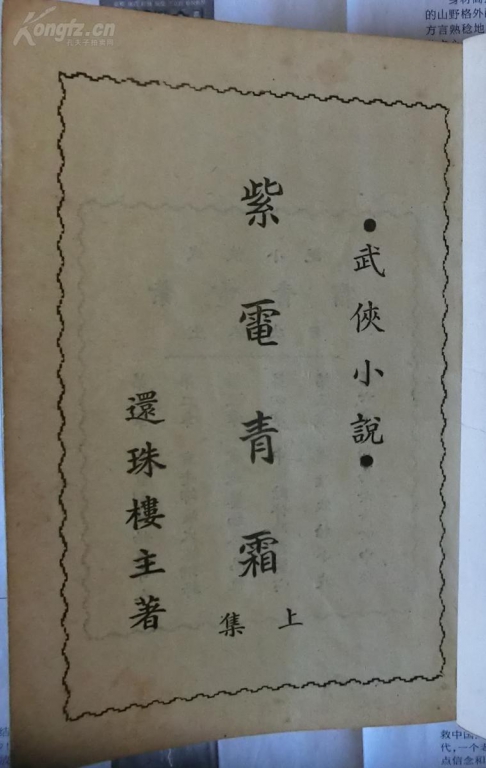 ●武俠小說●
紫電青霜
上集
還珠樓主著
Kongfz.cn
的山野格外
方言熟稔地
救中国
代，一个老
点信念和